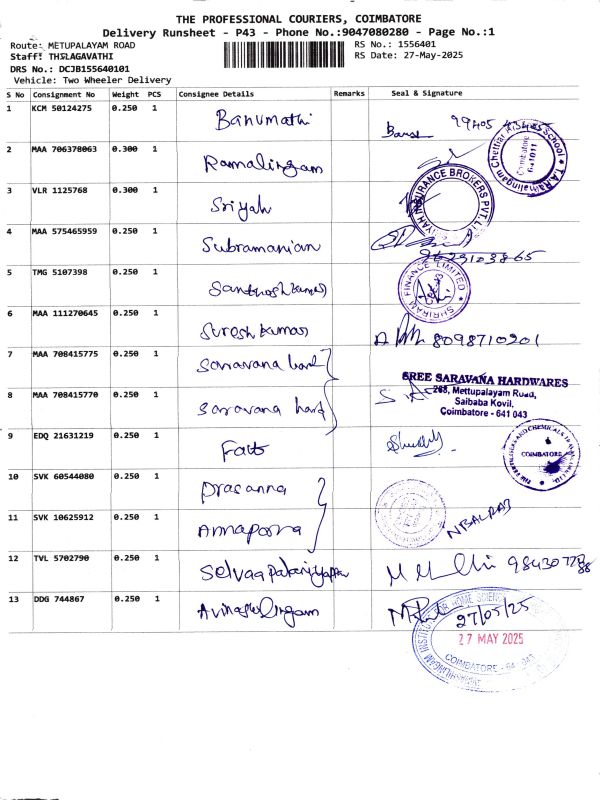 THE PROFESSIONAL COURIERS, COIMBATORE
Delivery Runsheet - P43 - Phone No.:9047080280 - Page No.:1
Route: METUPALAYAM ROAD
RS No.: 1556401
Staff: THILAGAVATHI
RS Date: 27-May-2025
DRS No.: DCJB155640101
Vehicle: Two Wheeler Delivery
S No Consignment No Weight PCS Consignee Details Remarks Seal & Signature
1 KCM 50124275 0.250 1 Banumathi
2 MAA 706378063 0.300 1 Ramalingam
Chettiar School
Coimbatore 641011
3 VLR 1125768 0.300 1 Sriyah
INSURANCE BROKERS PVT. L
4 MAA 575465959 0.250 1 Subramanian
5 TMG 5107398 0.250 1 Santhosh kumar
SHRIRAM FINANCE LIMITED
6 MAA 111270645 0.250 1 Suresh kumar 8098710201
7 MAA 708415775 0.250 1 Saravana hard
8 MAA 708415770 0.250 1 Saravana hard
SREE SARAVANA HARDWARES
268, Mettupalayam Road,
Saibaba Kovil,
Coimbatore - 641 043
9 EDQ 21631219 0.250 1 Fatt
COIMBATORE
10 SVK 60544080 0.250 1 Prasanna
11 SVK 10625912 0.250 1 Annapoorna
12 TVL 5702790 0.250 1
13 DDG 744867 0.250 1 Avinashilingam
27/05/25
27 MAY 2025
COIMBATORE - 641 043